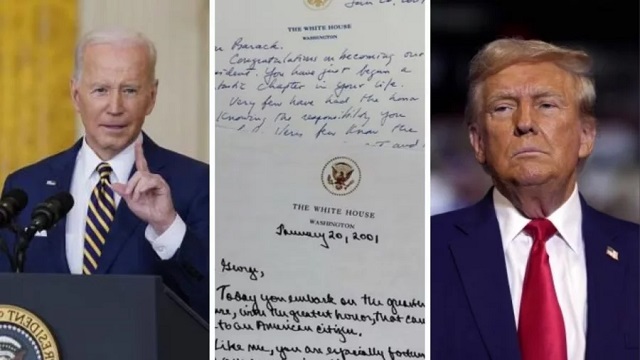 THE WHITE HOUSE
WASHINGTON
Barack,
Congratulations on becoming our
sident. You have just begun a
tastic Chapter in your life.
Very few have had the honor
knowing the responsibility you
Very few know the
t and
THE WHITE HOUSE
WASHINGTON
January 20, 2001
George,
Today you embark on the greatest
with the greatest honor, that can
to an American citizen.
Like me, you are especially fortun
PRESIDENT